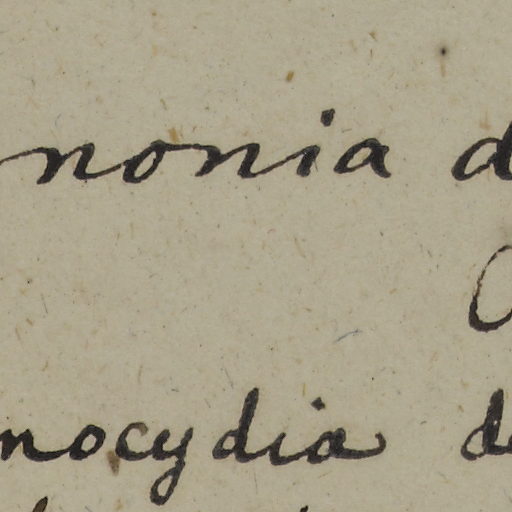 nonia d
nocydia de